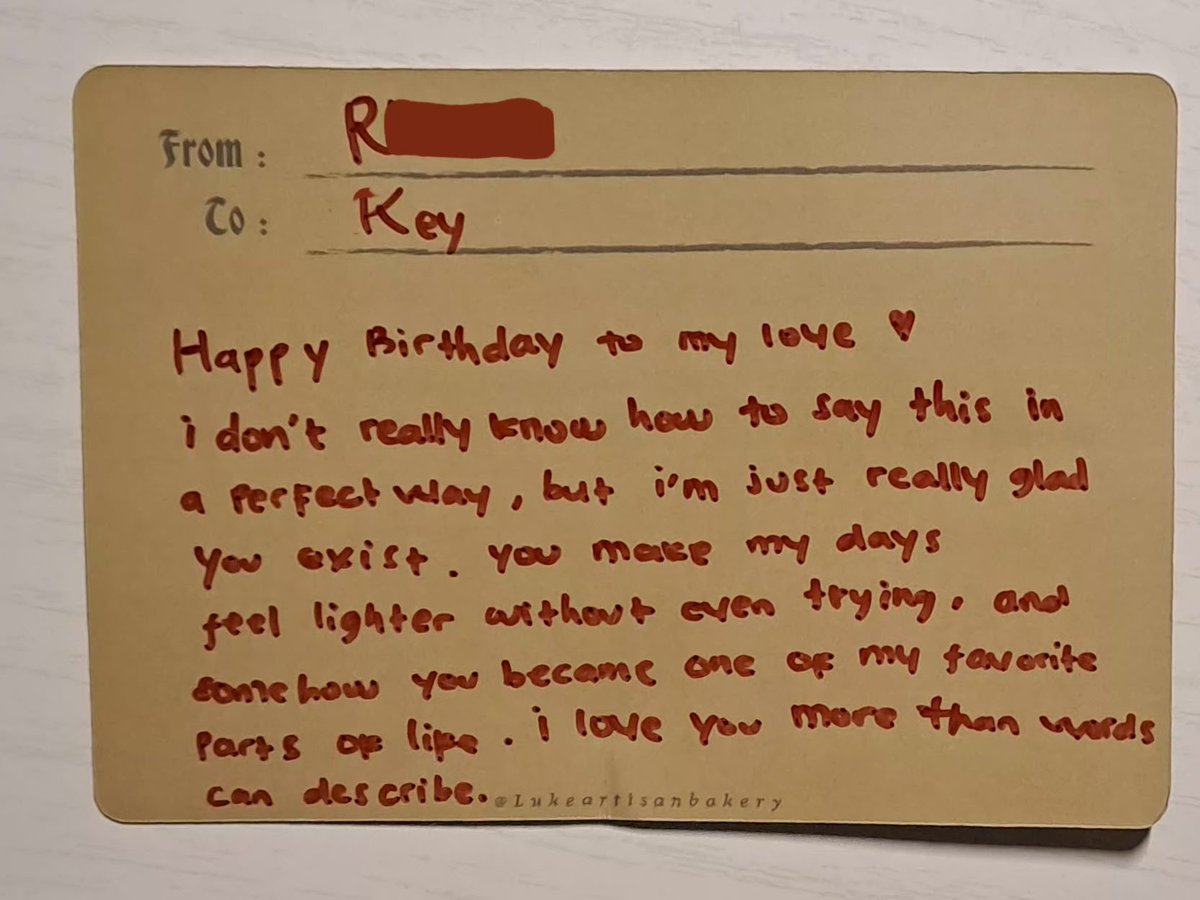 From: R
To: Key
Happy Birthday to my love ♥
i don't really know how to say this in
a perfect way, but i'm just really glad
you exist. you make my days
feel lighter without even trying, and
somehow you became one of my favorite
parts of life. i love you more than words
can describe.
@Lukeartisanbakery